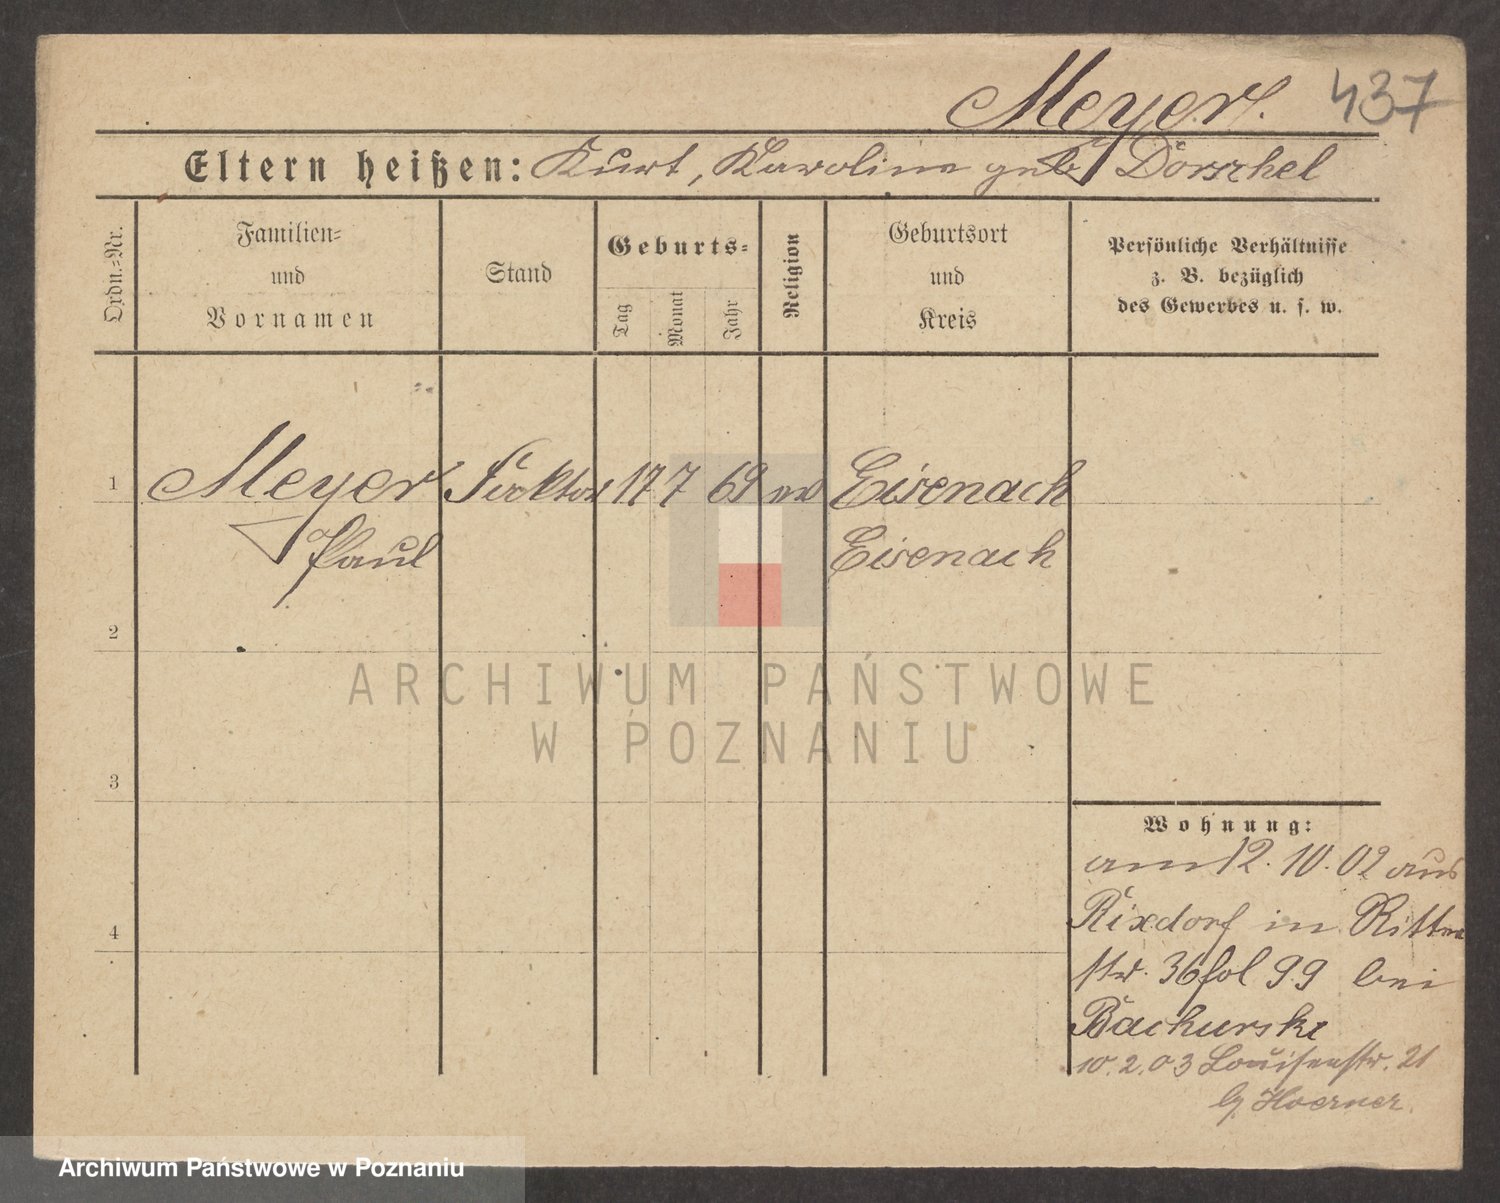 Meyer. 437
Eltern heißen: Kurt, Karoline geb. Dörschel
Ordn.-Nr.
Familien-
und
Vornamen
Stand
Geburts-
Tag
Monat
Jahr
Religion
Geburtsort
und
Kreis
Persönliche Verhältnisse
z. B. bezüglich
des Gewerbes u. s. w.
1 Meyer 17 7 69 ev Eisenach
Paul Eisenach
2
ARCHIWUM PAŃSTWOWE
W POZNANIU
3
Wohnung:
am 12. 10. 02 aus
Rixdorf in Ritter
4
str. 36 fol 99 bei
Bachurski
10. 2. 03 Louisenstr. 21
Hoerner
Archiwum Państwowe w Poznaniu